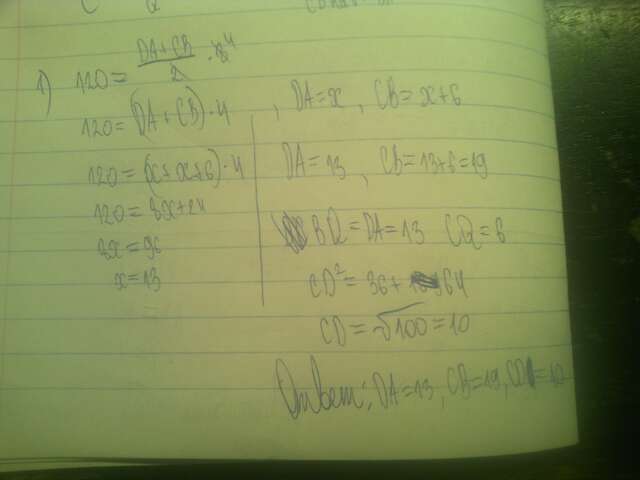 1) 120 = DA+CB / 2 · 8 4
120 = (DA + CB) · 4 , DA = x , CB = x+6
120 = (x + x + 6) · 4
DA = 13 , CB = 13+6 = 19
120 = 8x + 24
8x = 96
x = 13
BQ = DA = 13 CQ = 6
CD² = 36 + 64
CD = √100 = 10
Ответ: DA = 13, CB = 19, CD = 10